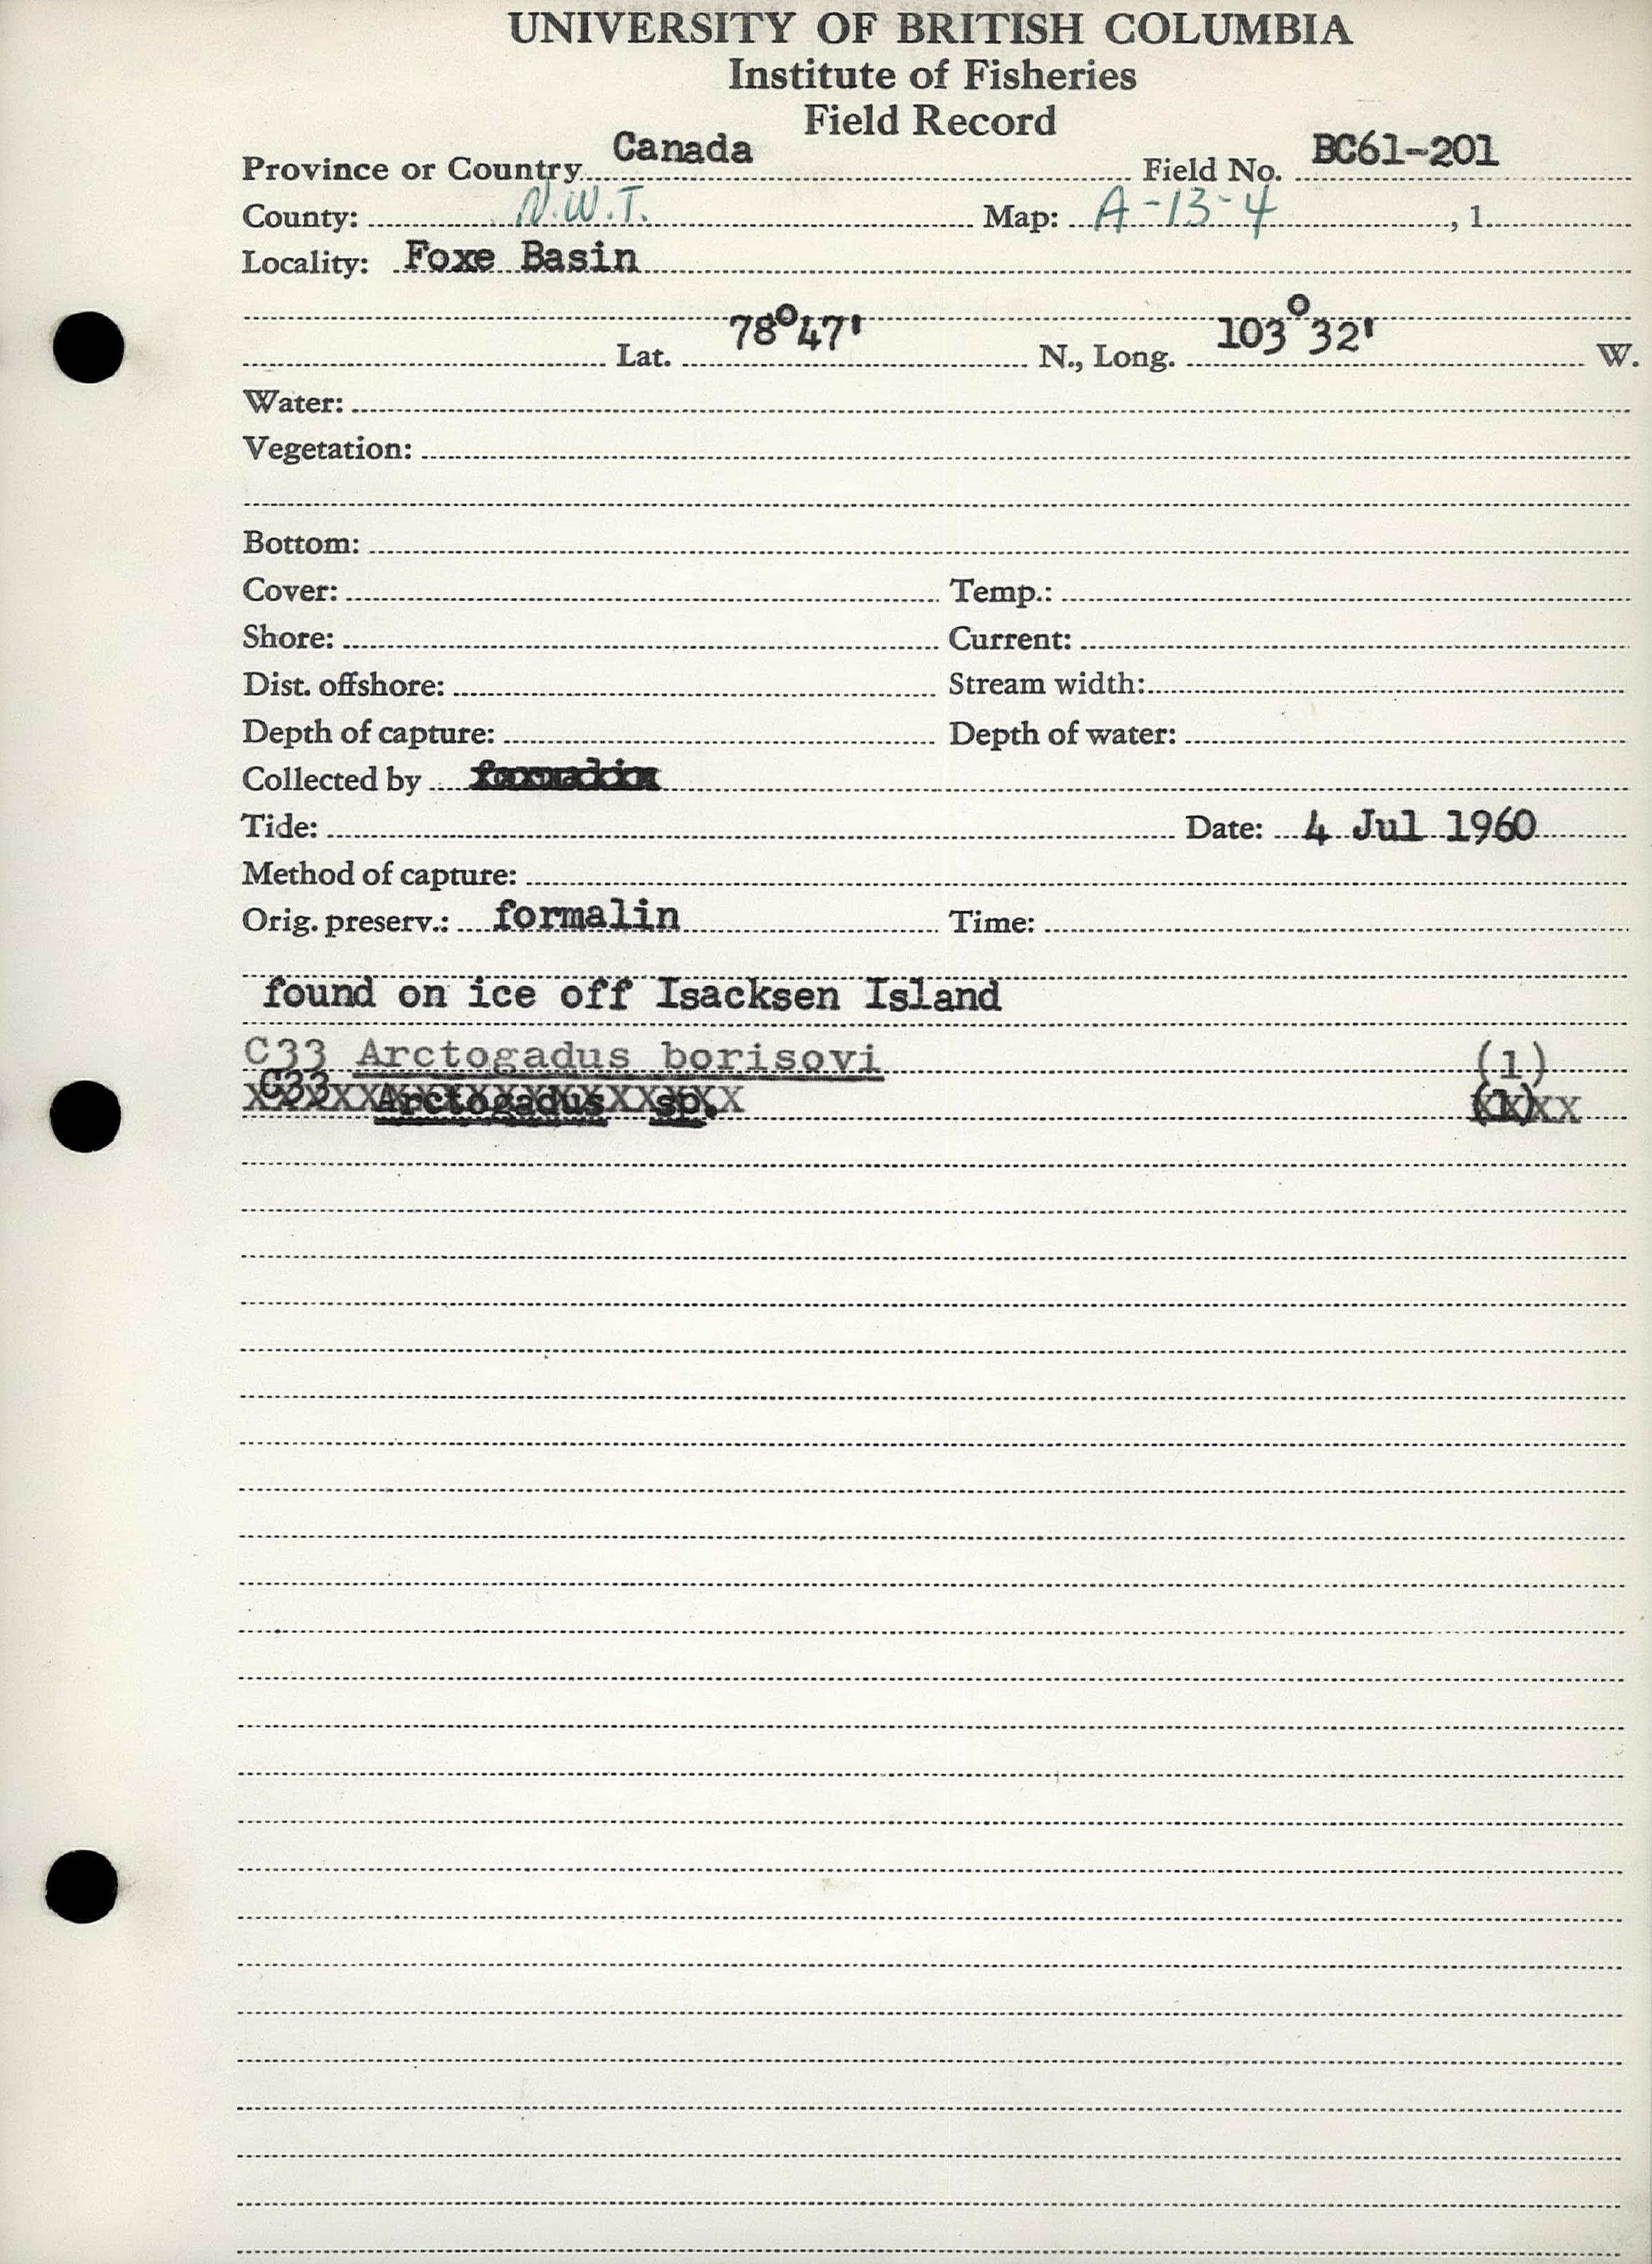 UNIVERSITY OF BRITISH COLUMBIA
Institute of Fisheries
Field Record
Province or Country Canada Field No. BC61-201
County: N.W.T. Map: A-13-4 , 1
Locality: Foxe Basin
Lat. 78°47' N., Long. 103°32' W.
Water:
Vegetation:
Bottom:
Cover: Temp.:
Shore: Current:
Dist. offshore: Stream width:
Depth of capture: Depth of water:
Collected by formalin
Tide: Date: 4 Jul 1960
Method of capture:
Orig. preserv.: formalin Time:
found on ice off Isacksen Island
C33 Arctogadus borisovi (1)
C33 Arctogadus sp. (1)